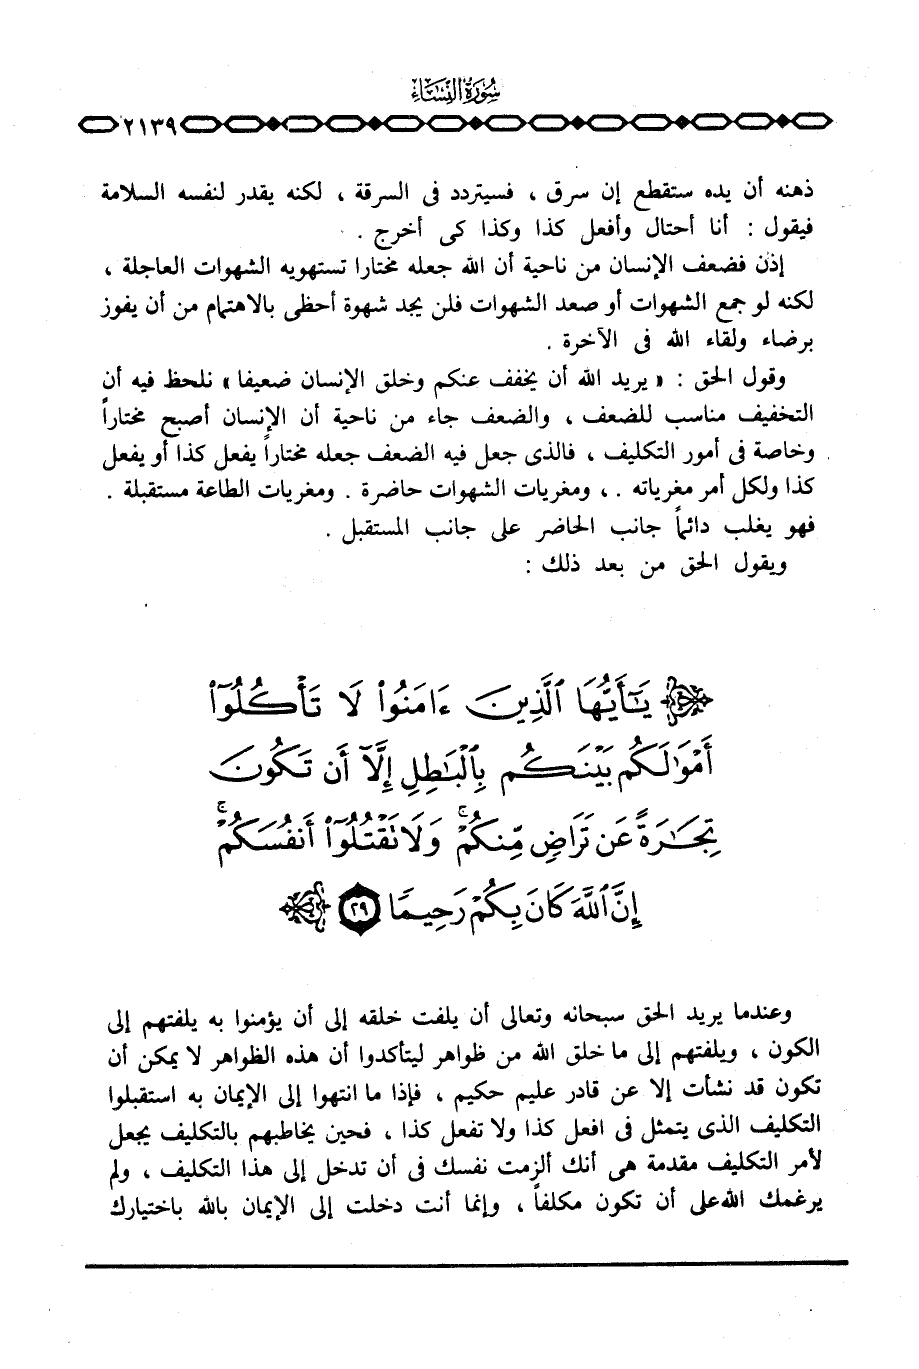 سُورَةُ النِّسَاءِ
٢١٣٩
ذهنه أن يده ستقطع إن سرق ، فسيتردد فى السرقة ، لكنه يقدر لنفسه السلامة
فيقول : أنا أحتال وأفعل كذا وكذا كى أخرج .
إذن فضعف الإنسان من ناحية أن الله جعله مختارا تستهويه الشهوات العاجلة ،
لكنه لو جمع الشهوات أو صعد الشهوات فلن يجد شهوة أحظى بالاهتمام من أن يفوز
برضاء ولقاء الله فى الآخرة .
وقول الحق : « يريد الله أن يخفف عنكم وخلق الإنسان ضعيفا » نلحظ فيه أن
التخفيف مناسب للضعف ، والضعف جاء من ناحية أن الإنسان أصبح مختاراً
وخاصة فى أمور التكليف ، فالذى جعل فيه الضعف جعله مختاراً يفعل كذا أو يفعل
كذا ولكل أمر مغرياته . ، ومغريات الشهوات حاضرة . ومغريات الطاعة مستقبلة .
فهو يغلب دائماً جانب الحاضر على جانب المستقبل .
ويقول الحق من بعد ذلك :
يَـٰٓأَيُّهَا ٱلَّذِينَ ءَامَنُوا۟ لَا تَأْكُلُوٓا۟
أَمْوَٰلَكُم بَيْنَكُم بِٱلْبَـٰطِلِ إِلَّآ أَن تَكُونَ
تِجَـٰرَةً عَن تَرَاضٍ مِّنكُمْ ۚ وَلَا تَقْتُلُوٓا۟ أَنفُسَكُمْ ۚ
إِنَّ ٱللَّهَ كَانَ بِكُمْ رَحِيمًا ٢٩
وعندما يريد الحق سبحانه وتعالى أن يلفت خلقه إلى أن يؤمنوا به يلفتهم إلى
الكون ، ويلفتهم إلى ما خلق الله من ظواهر ليتأكدوا أن هذه الظواهر لا يمكن أن
تكون قد نشأت إلا عن قادر عليم حكيم ، فإذا ما انتهوا إلى الإيمان به استقبلوا
التكليف الذى يتمثل فى افعل كذا ولا تفعل كذا ، فحين يخاطبهم بالتكليف يجعل
لأمر التكليف مقدمة هى أنك ألزمت نفسك فى أن تدخل إلى هذا التكليف ، ولم
يرغمك الله على أن تكون مكلفاً ، وإنما أنت دخلت إلى الإيمان بالله باختيارك